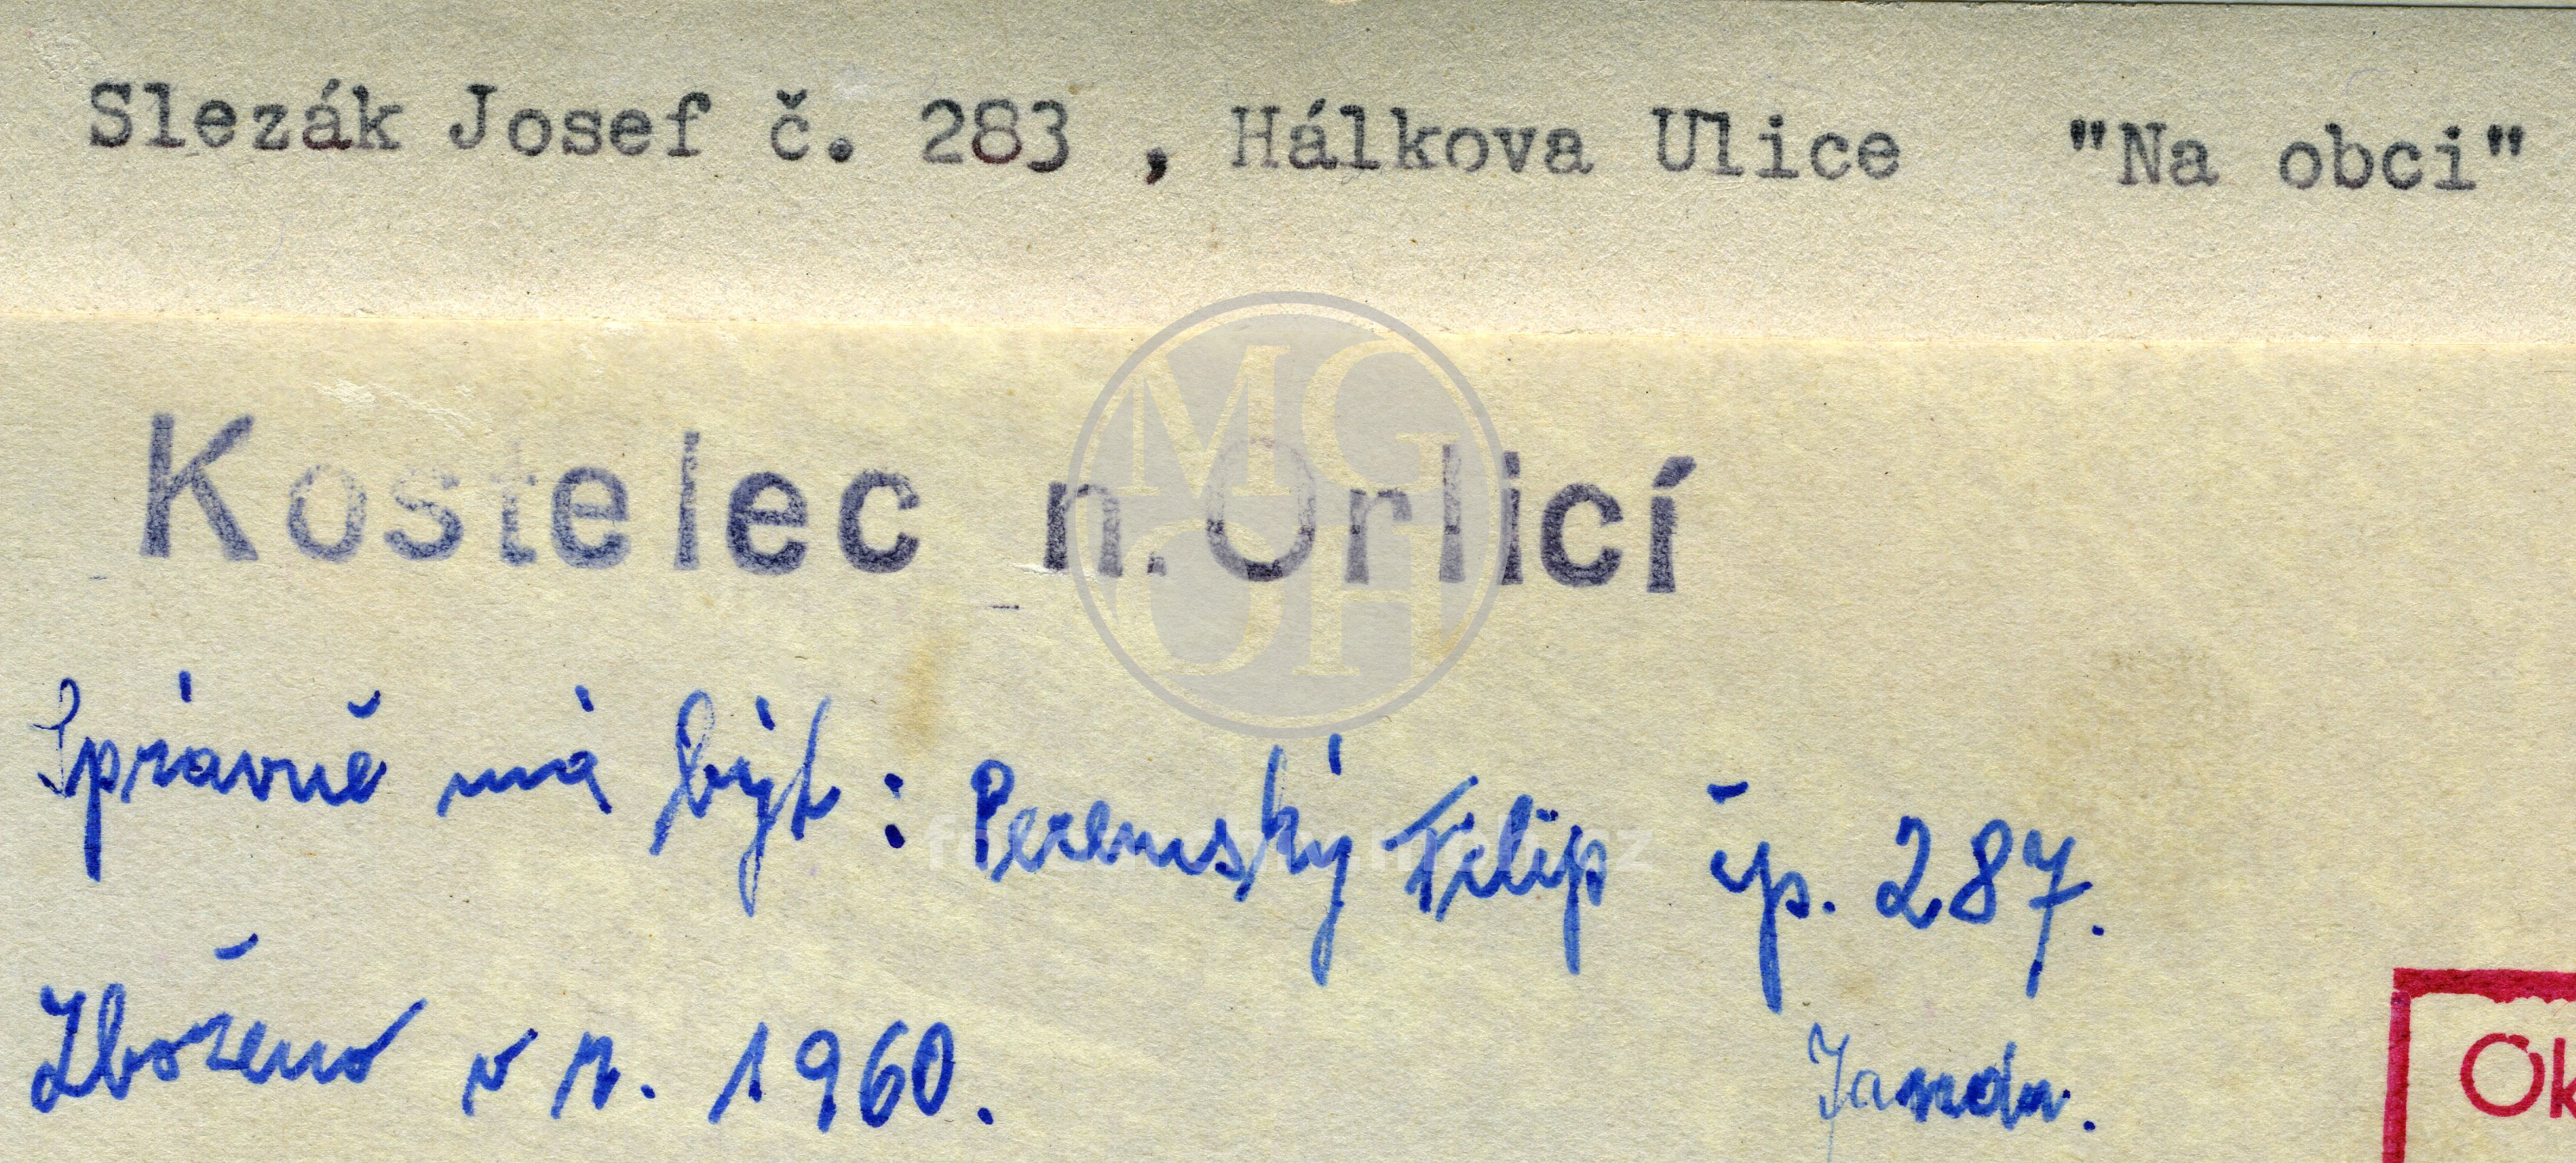 Slezák Josef č. 283 , Hálkova Ulice "Na obci"
Kostelec n. Orlicí
MG
OH
Správně má být : Peremský Filip čp. 287.
Zbořeno v r. 1960.
Janda.
Ok